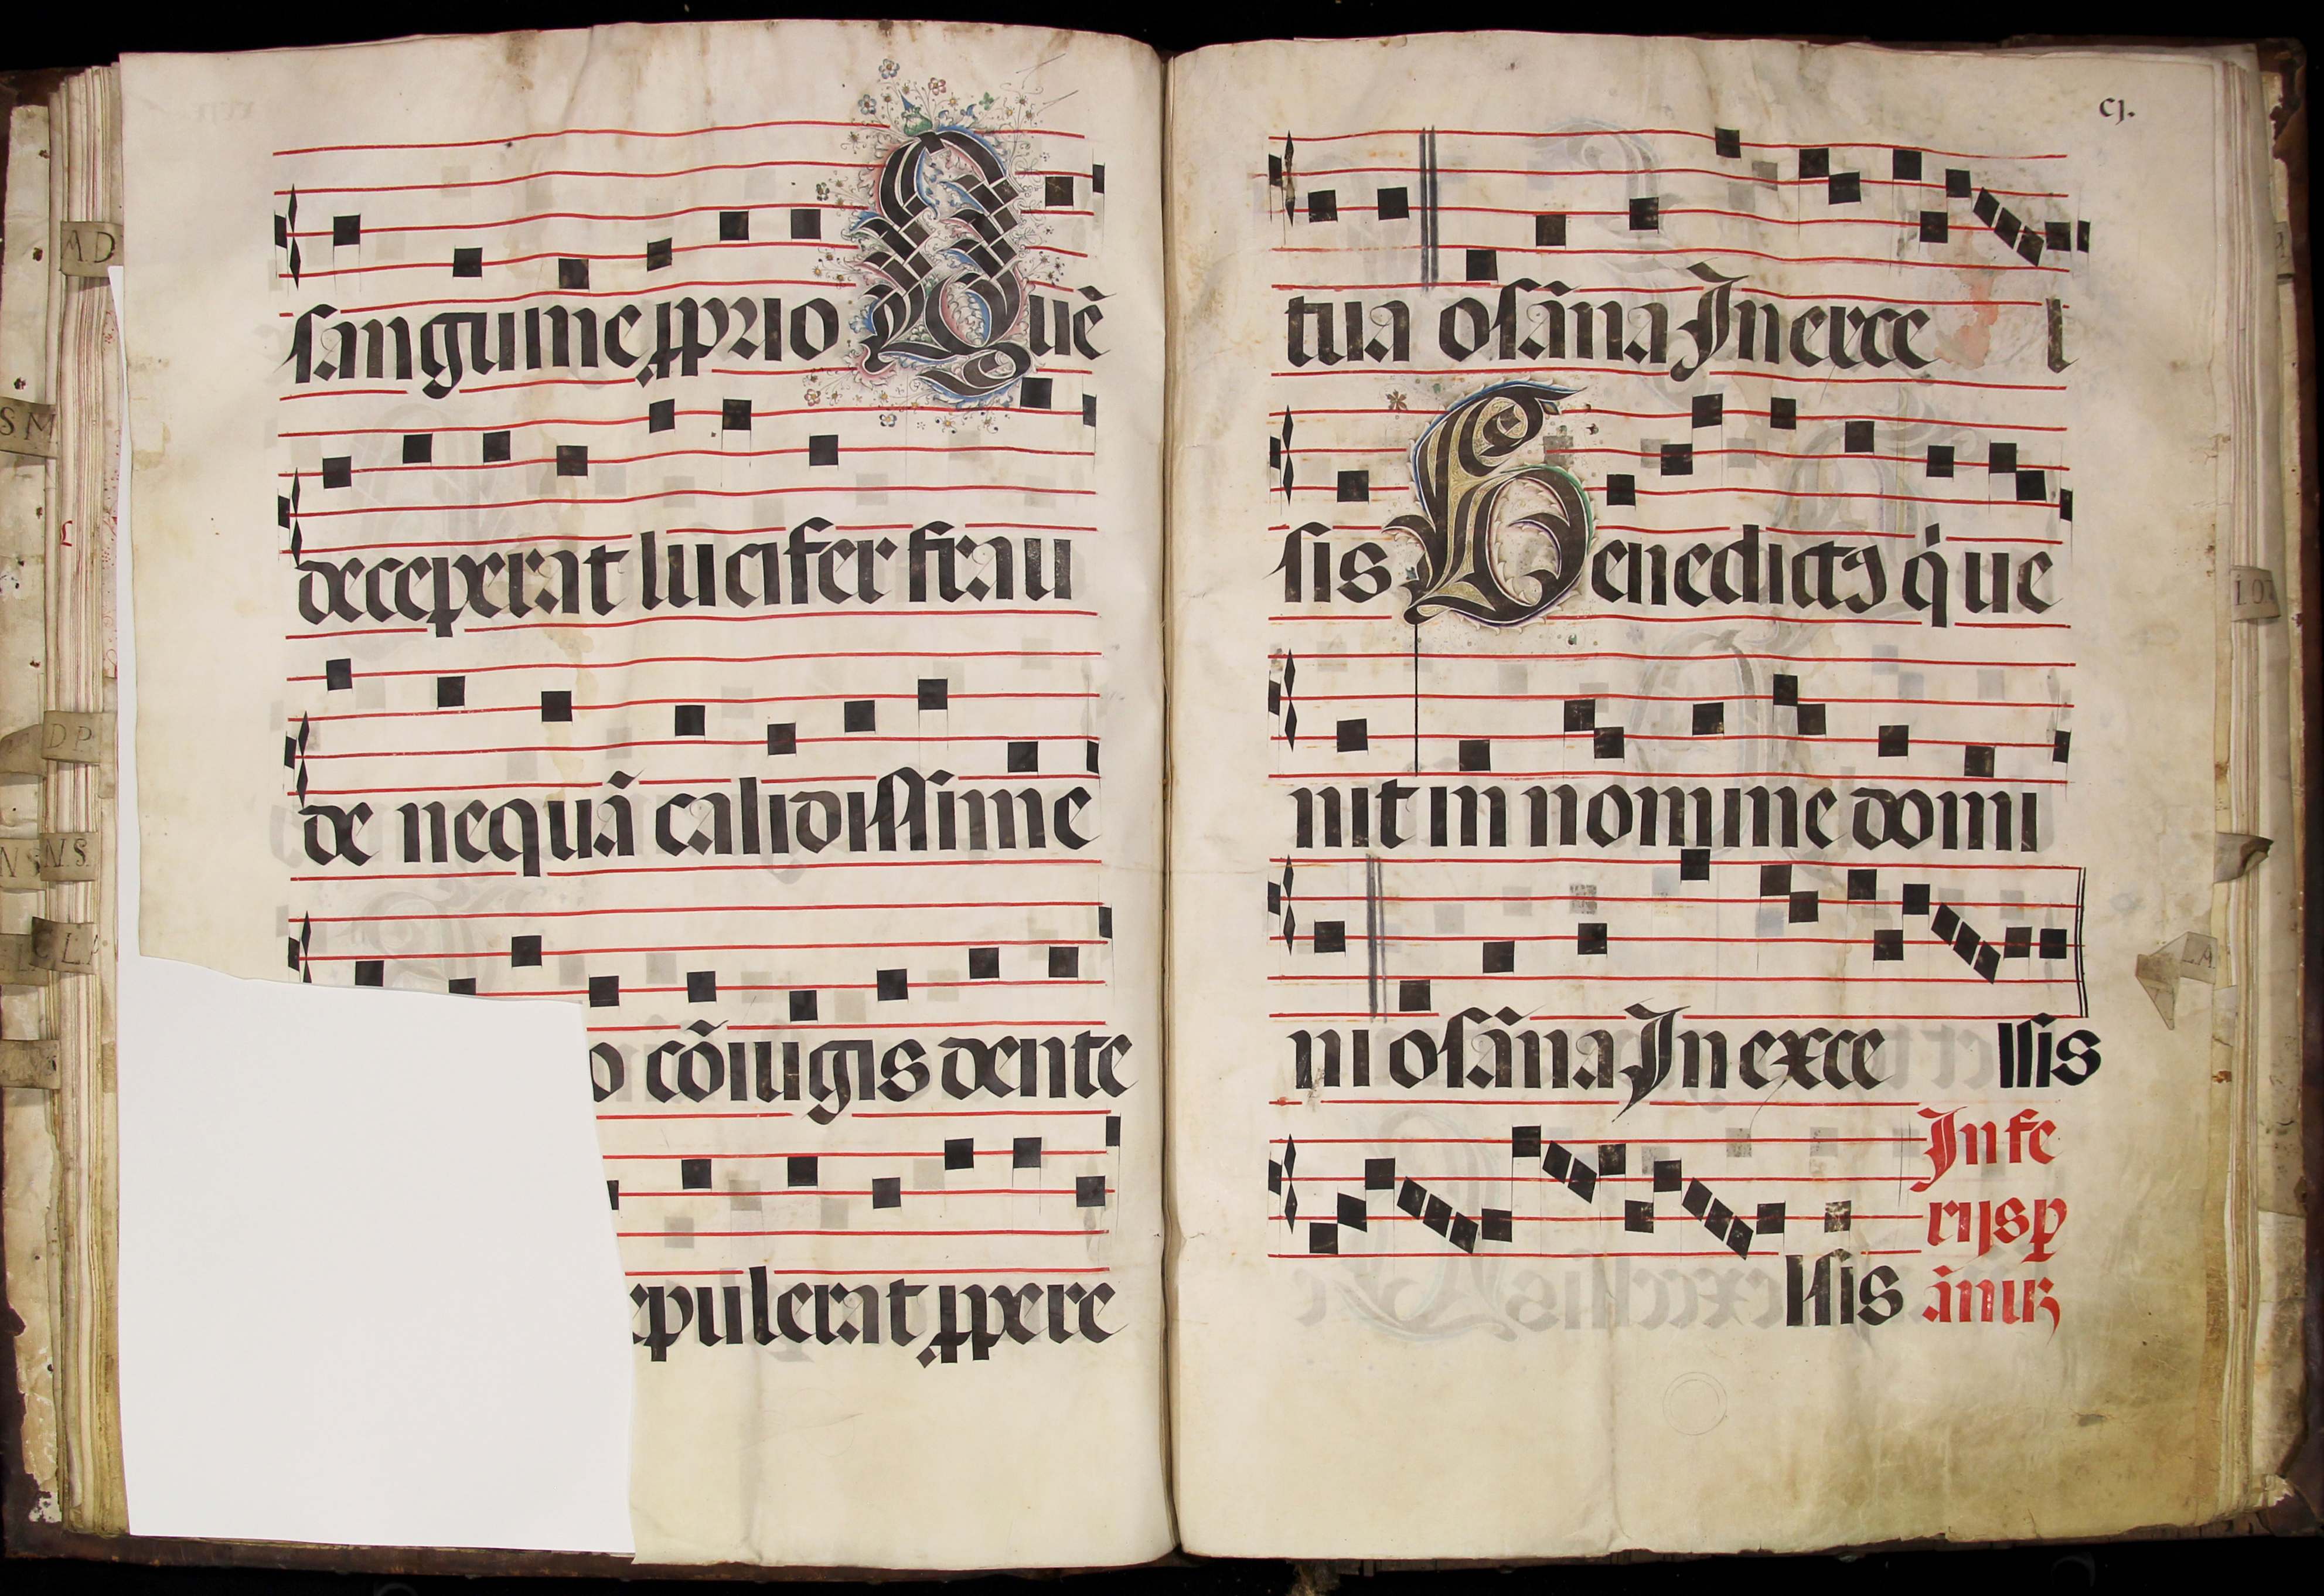 sanguine ꝓprio Quē
deceperat lucifer frau
de nequā calidissime
o cōiugis dente
epulerat ꝓpere
AD
SM
DP
N.S.
LA
cj.
tua osāna In exce l
sis Benedictꝰ q̇ ue
nit in nomine domi
ni osāna In exce llsis
llsis
In fe
rijs ꝑ
ānuꝫ
LA